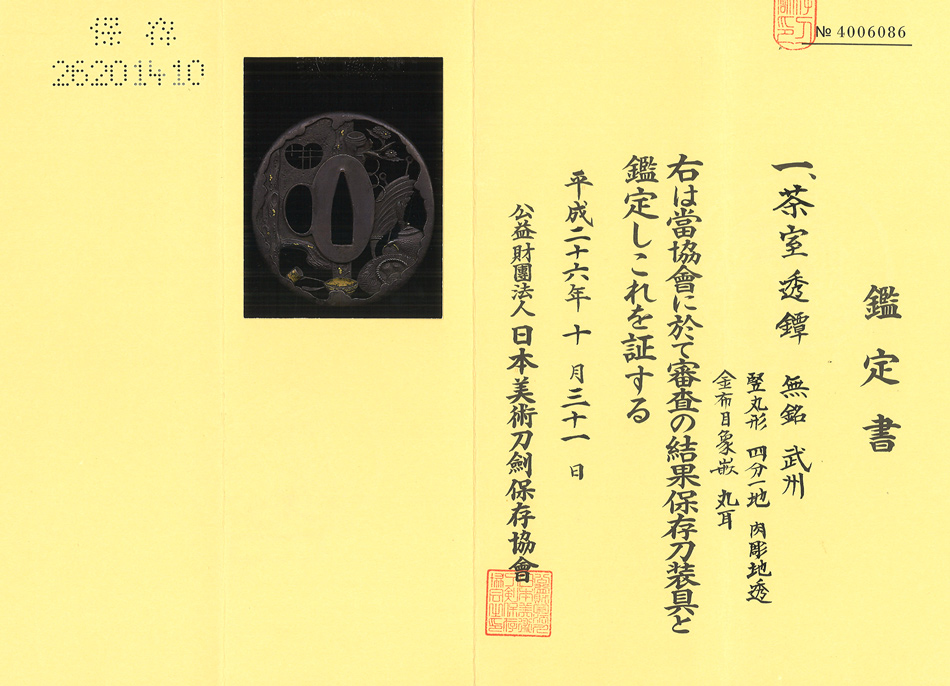 鑑定書
一、茶室透鐔 無銘 武州
竪丸形 四分一地 肉彫地透
金布目象嵌 丸耳
右は當協會に於て審査の結果保存刀装具と
鑑定しこれを証する
平成二十六年 十 月三十一 日
公益財團法人 日本美術刀劍保存協會
№ 4006086
保存
26201410